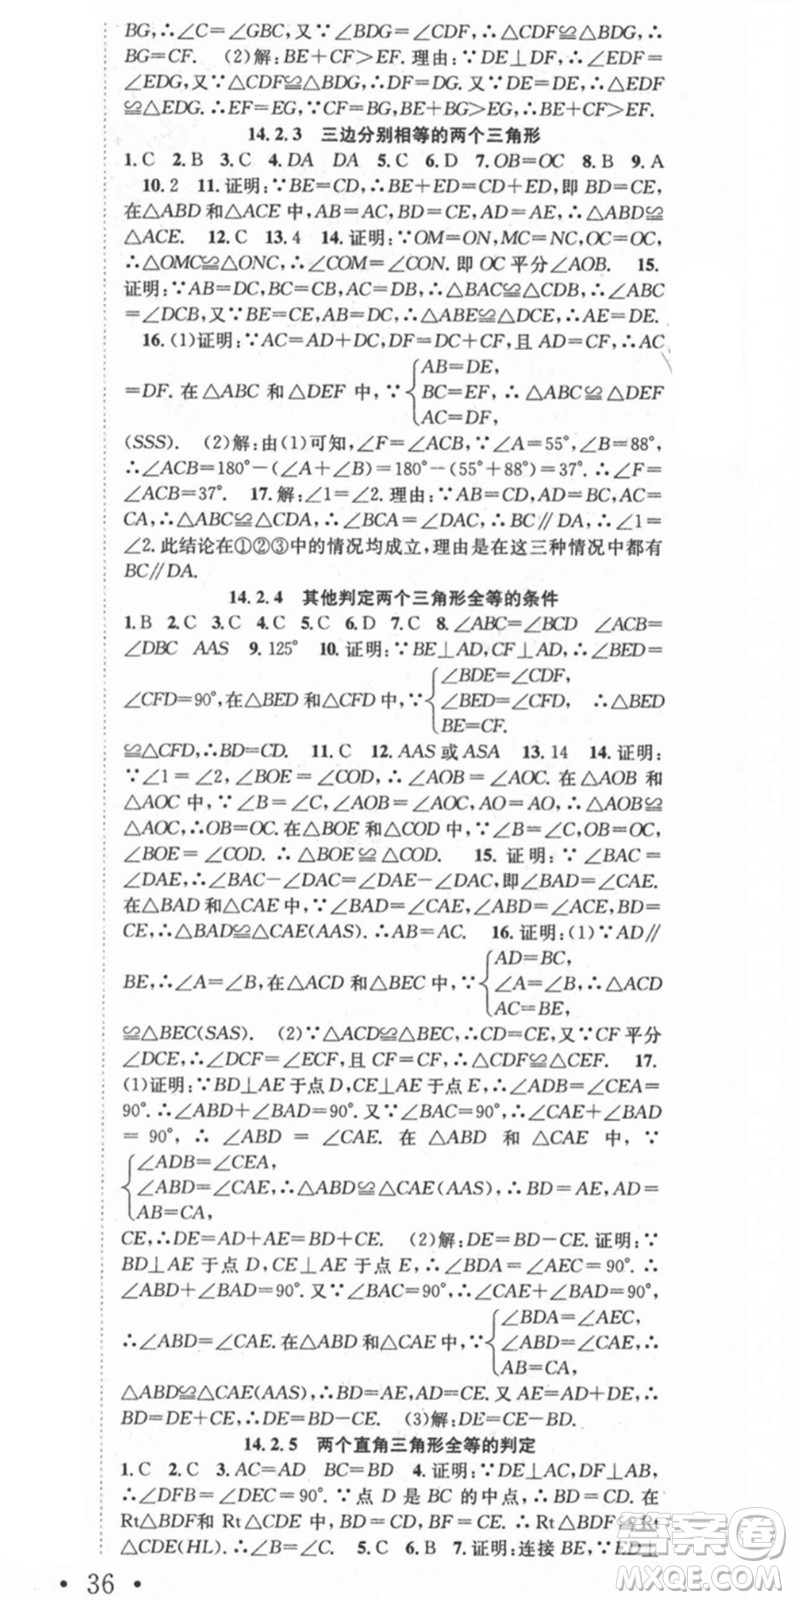 BG,∴∠C=∠GBC,又∵∠BDG=∠CDF,∴△CDF≌△BDG,∴
BG=CF. (2)解:BE+CF>EF.理由:∵DE⊥DF,∴∠EDF=
∠EDG,又∵△CDF≌△BDG,∴DF=DG.又∵DE=DE,∴△EDF
≌△EDG.∴EF=EG,∵CF=BG,BE+BG>EG,∴BE+CF>EF.
14.2.3 三边分别相等的两个三角形
1.C 2.B 3.C 4.DA DA 5.C 6.D 7.OB=OC 8.B 9.A
10.2 11.证明:∵BE=CD,∴BE+ED=CD+ED,即BD=CE,
在△ABD和△ACE中,AB=AC,BD=CE,AD=AE,∴△ABD≌
△ACE. 12.C 13.4 14.证明:∵OM=ON,MC=NC,OC=OC,
∴△OMC≌△ONC,∴∠COM=∠CON.即OC平分∠AOB. 15.
证明:∵AB=DC,BC=CB,AC=DB,∴△BAC≌△CDB,∴∠ABC
=∠DCB,又∵BE=CE,AB=DC,∴△ABE≌△DCE,∴AE=DE.
16.(1)证明:∵AC=AD+DC,DF=DC+CF,且AD=CF,∴AC
=DF.在△ABC和△DEF中,∵{AB=DE,
BC=EF,∴△ABC≌△DEF
AC=DF,
(SSS). (2)解:由(1)可知,∠F=∠ACB,∵∠A=55°,∠B=88°,
∴∠ACB=180°-(∠A+∠B)=180°-(55°+88°)=37°.∴∠F=
∠ACB=37°. 17.解:∠1=∠2.理由:∵AB=CD,AD=BC,AC=
CA,∴△ABC≌△CDA,∴∠BCA=∠DAC,∴BC∥DA,∴∠1=
∠2.此结论在①②③中的情况均成立,理由是在这三种情况中都有
BC∥DA.
14.2.4 其他判定两个三角形全等的条件
1.B 2.C 3.C 4.C 5.C 6.D 7.C 8.∠ABC=∠BCD ∠ACB=
∠DBC AAS 9.125° 10.证明:∵BE⊥AD,CF⊥AD,∴∠BED=
∠CFD=90°,在△BED和△CFD中,∵{∠BDE=∠CDF,
∠BED=∠CFD, ∴△BED
BE=CF.
≌△CFD,∴BD=CD. 11.C 12.AAS或ASA 13.14 14.证明:
∵∠1=∠2,∠BOE=∠COD,∴∠AOB=∠AOC.在△AOB和
△AOC中,∵∠B=∠C,∠AOB=∠AOC,AO=AO,∴△AOB≌
△AOC,∴OB=OC.在△BOE和△COD中,∵∠B=∠C,OB=OC,
∠BOE=∠COD.∴△BOE≌△COD. 15.证明:∵∠BAC=
∠DAE,∴∠BAC-∠DAC=∠DAE-∠DAC,即∠BAD=∠CAE.
在△BAD和△CAE中,∵∠BAD=∠CAE,∠ABD=∠ACE,BD=
CE,∴△BAD≌△CAE(AAS).∴AB=AC. 16.证明:(1)∵AD∥
BE,∴∠A=∠B,在△ACD和△BEC中,∵{AD=BC,
∠A=∠B,∴△ACD
AC=BE,
≌△BEC(SAS). (2)∵△ACD≌△BEC,∴CD=CE,又∵CF平分
∠DCE,∴∠DCF=∠ECF,且CF=CF,∴△CDF≌△CEF. 17.
(1)证明:∵BD⊥AE于点D,CE⊥AE于点E,∴∠ADB=∠CEA=
90°.∴∠ABD+∠BAD=90°.又∵∠BAC=90°,∴∠CAE+∠BAD
=90°,∴∠ABD=∠CAE.在△ABD和△CAE中,∵
{∠ADB=∠CEA,
∠ABD=∠CAE,∴△ABD≌△CAE(AAS),∴BD=AE,AD=
AB=CA,
CE,∴DE=AD+AE=BD+CE. (2)解:DE=BD-CE.证明:∵
BD⊥AE于点D,CE⊥AE于点E,∴∠BDA=∠AEC=90°.∴
∠ABD+∠BAD=90°.又∵∠BAC=90°,∴∠CAE+∠BAD=90°,
∴∠ABD=∠CAE.在△ABD和△CAE中,∵{∠BDA=∠AEC,
∠ABD=∠CAE,∴
AB=CA,
△ABD≌△CAE(AAS),∴BD=AE,AD=CE.又AE=AD+DE,∴
BD=CE+DE,∴DE=BD-CE. (3)解:DE=CE-BD.
14.2.5 两个直角三角形全等的判定
1.C 2.C 3.AC=BD BC=BD 4.证明:∵DE⊥AC,DF⊥AB,
∴∠DFB=∠DEC=90°.∵点D是BC的中点,∴BD=CD.在
Rt△BDF和Rt△CDE中,BD=CD,BF=CE,∴Rt△BDF≌Rt
△CDE(HL).∴DE=DF. 5.C 6.B 7.证明:连接BE,∵ED⊥
• 36 •
答案卷
MXQE.COM